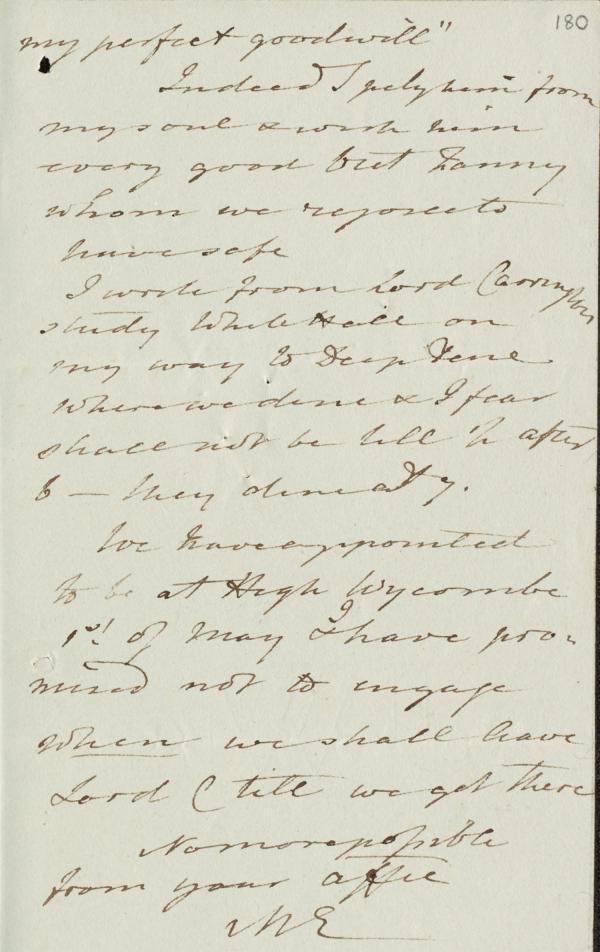 180
my perfect goodwill"
Indeed I pity him from
my soul & wish him
every good but Fanny
whom we rejoice to
have safe
I write from Lord Carringtons
study White Hall on
my way to Deep Dene
where we dine & I fear
shall not be till ½ after
6 — they dine at 7.
We have appointed
to be at High Wycombe
1st. of May & I have pro-
mised not to engage
when we shall leave
Lord C till we get there
No more possible
from your affte
ME